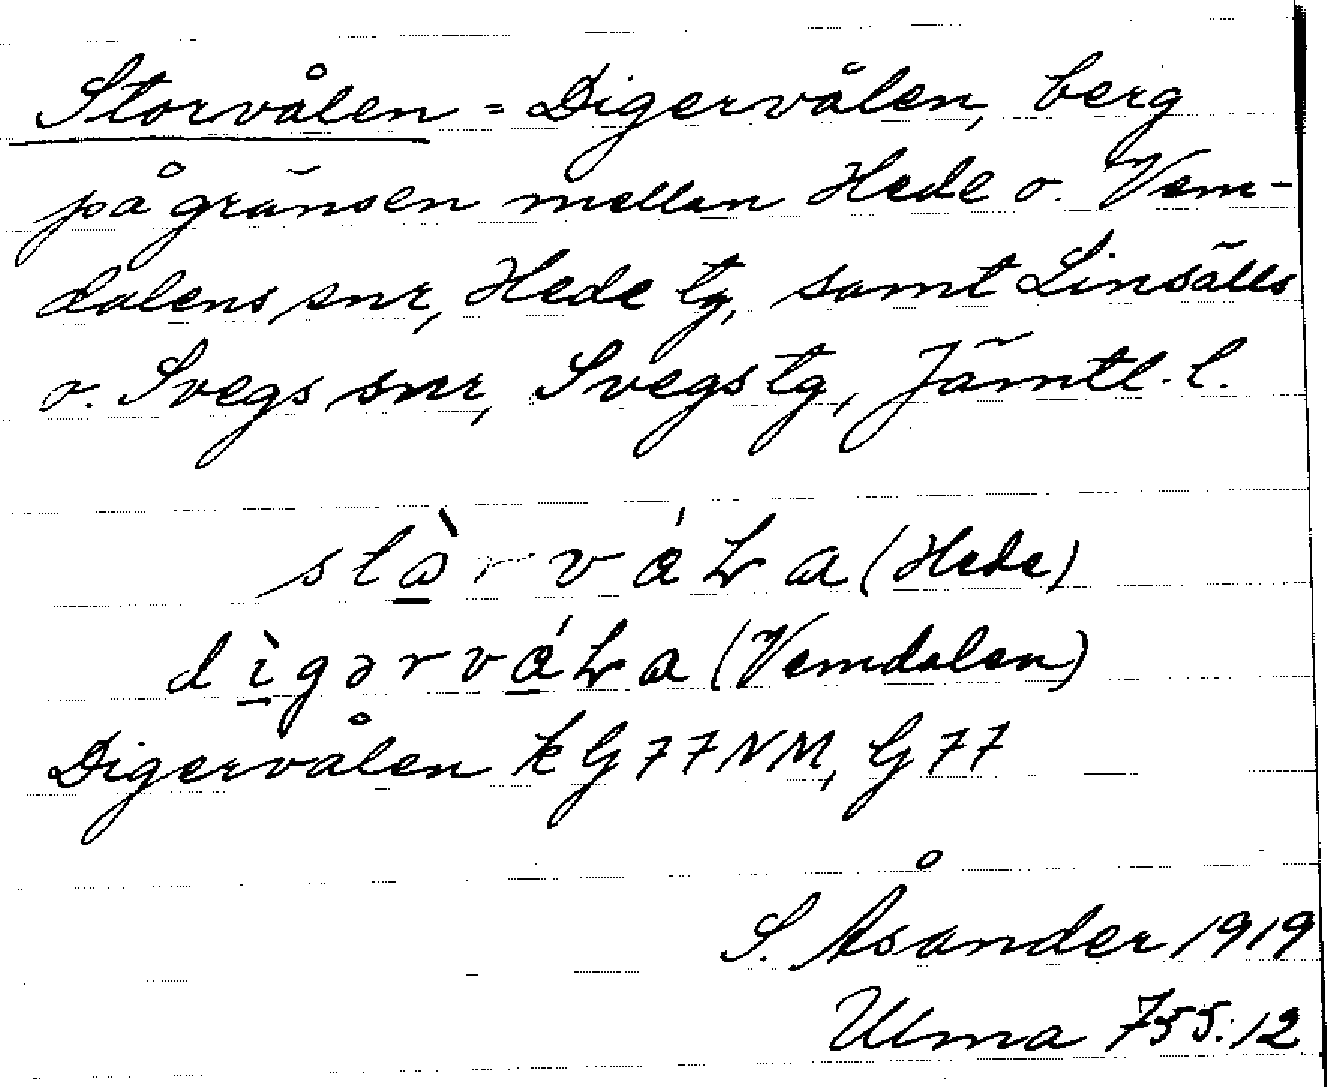 Storvålen = Digervålen, berg
på gränsen mellan Hede o. Vem-
dalens snr, Hede tg, samt Linsälls
o. Svegs snr, Svegs tg, Jämtl. l.
(Hede)
(Vemdalen)
Digervålen k G77NM, G77
S. Åsander 1919
Ulma 755:12